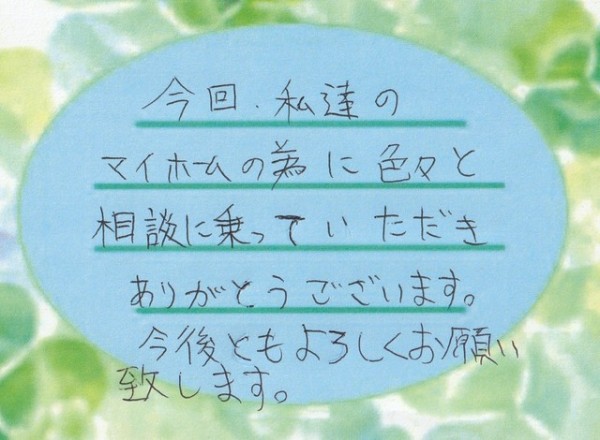 今回、私達の
マイホームの為に色々と
相談に乗っていただき
ありがとうございます。
今後ともよろしくお願い
致します。